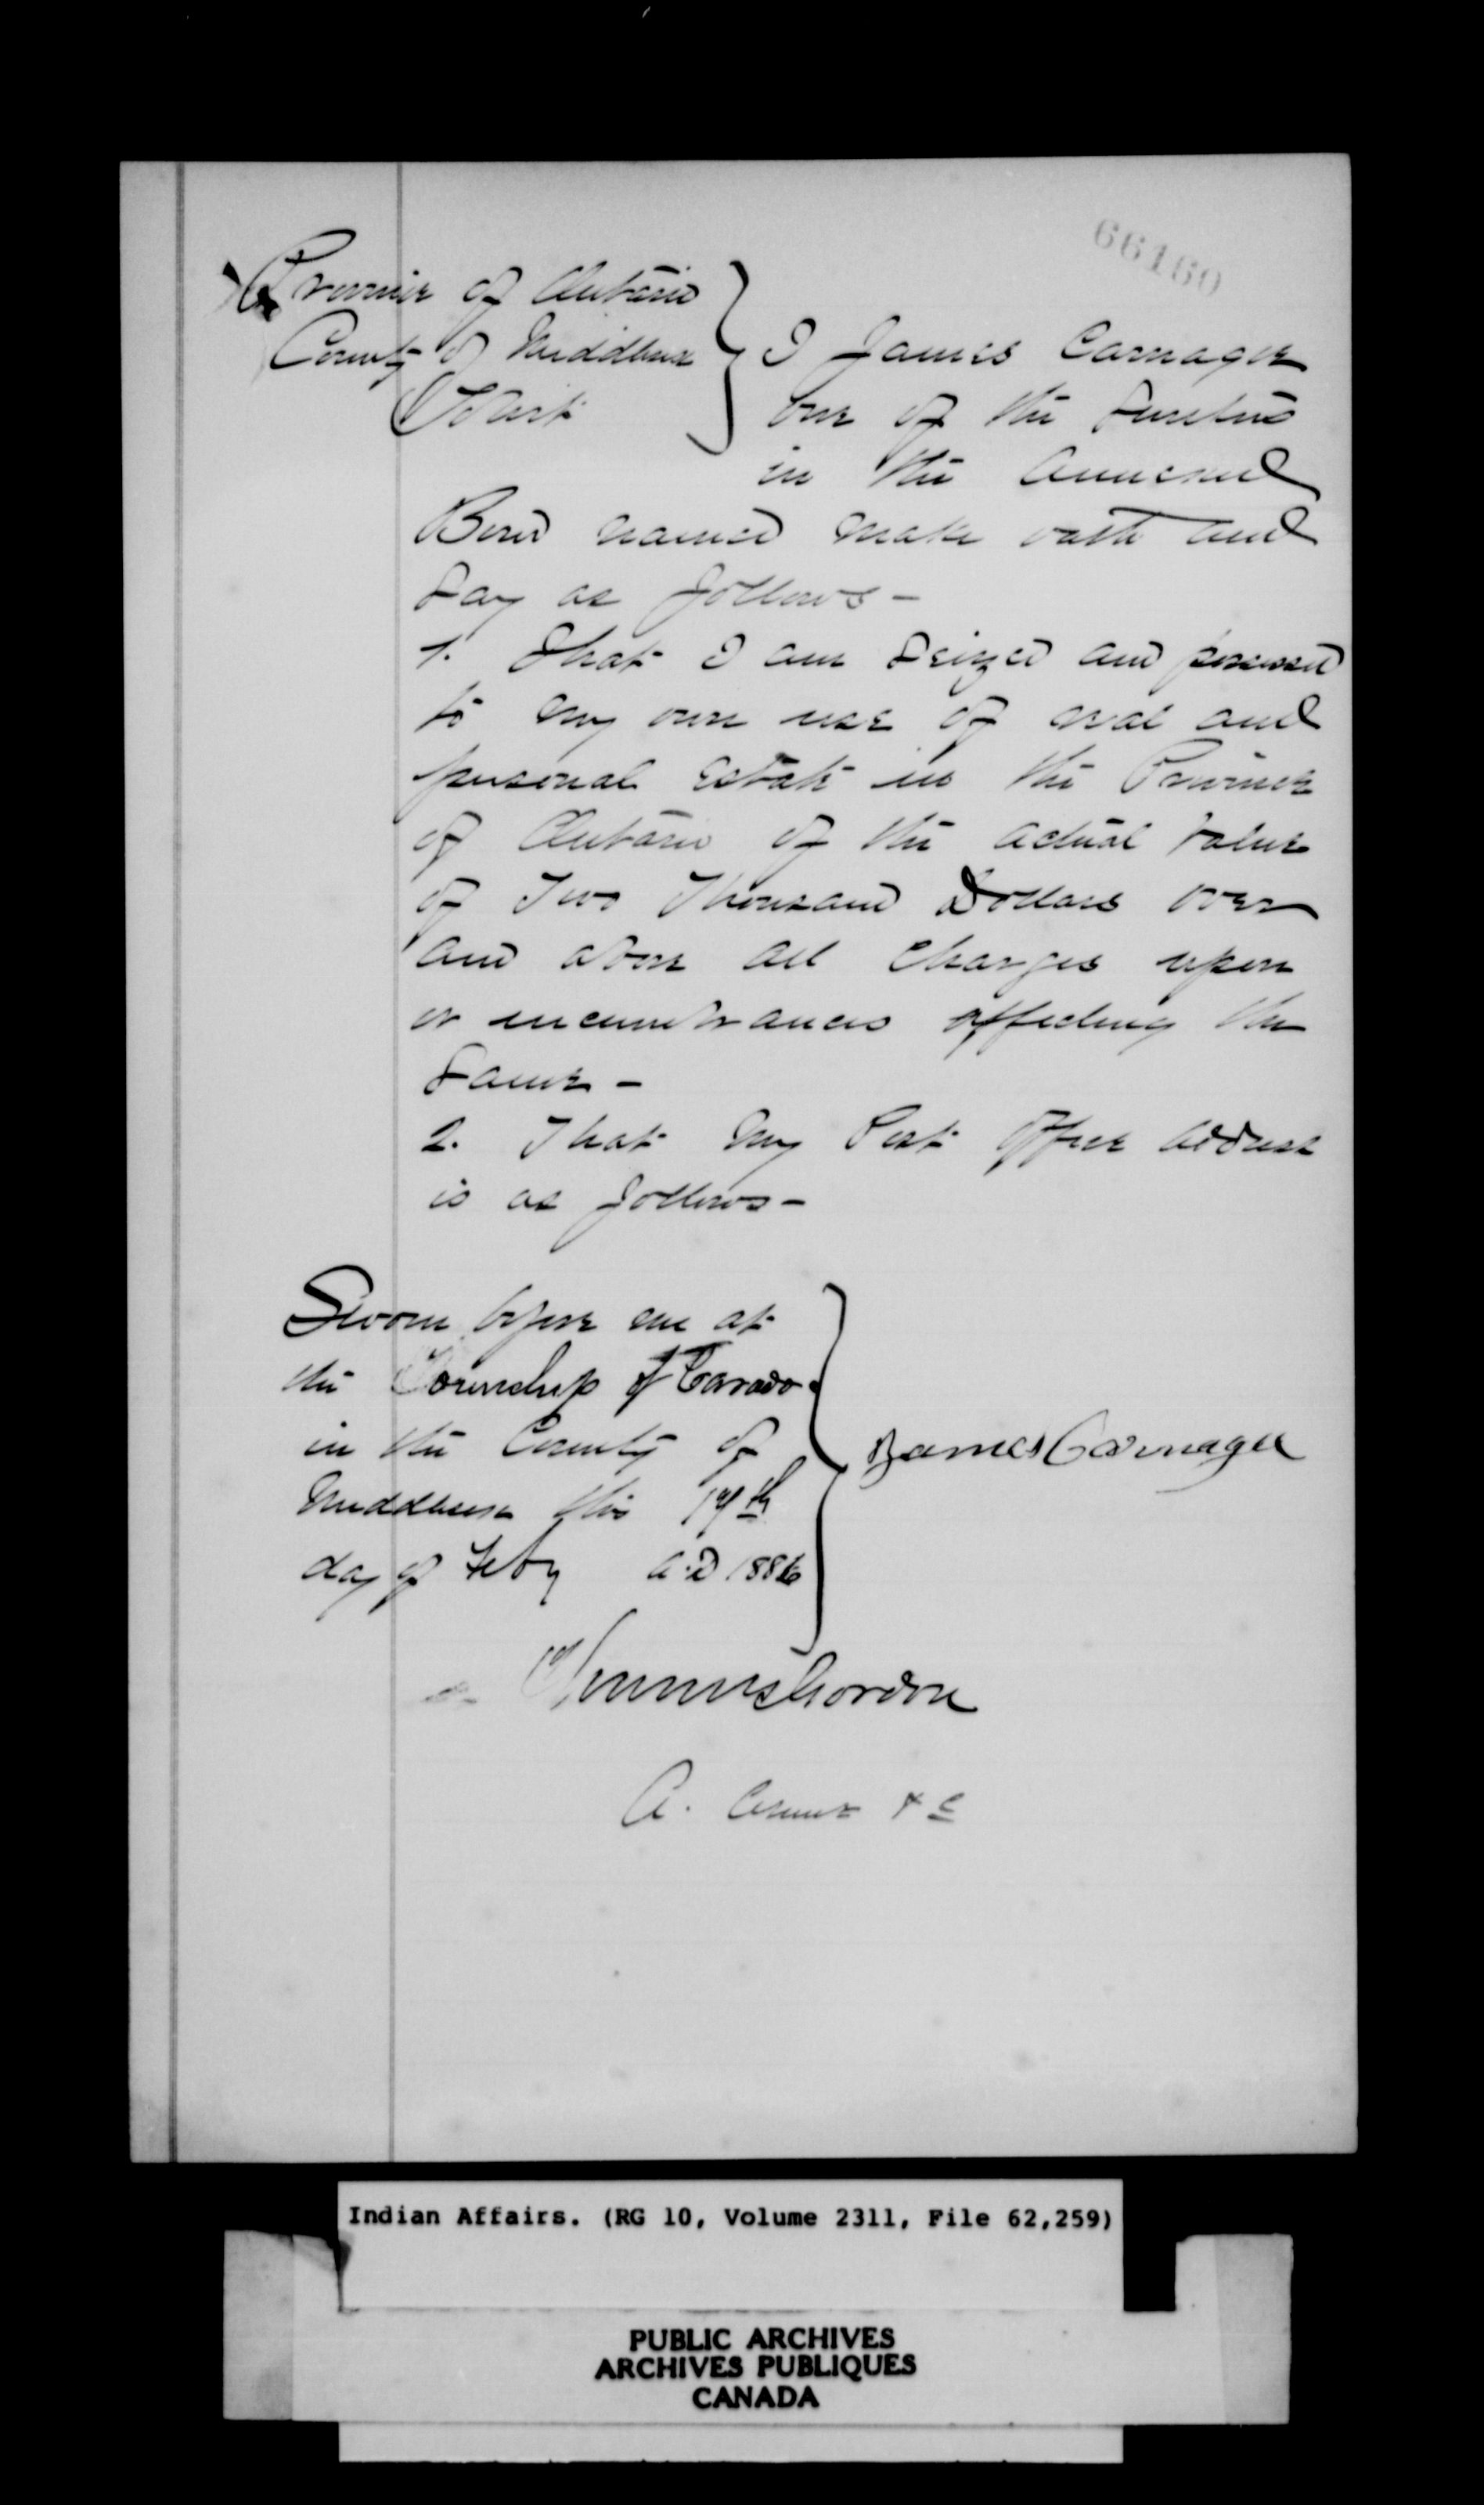 66160
Province of Ontario
County of Middlesex
To Wit
I James Carnagee
one of the Sureties
in the Annexed
Bond named make oath and
Say as follows -
1. That I am Seized and possessed
to my own use of real and
personal Estate in the Province
of Ontario of the actual value
of Two Thousand Dollars over
and above all Charges upon
or incumbrances affecting the
Same -
2. That my Post Office Address
is as follows -
Sworn before me at
the Township of Carado
in the County of
Middlesex this 19th
day of Feby A.D 1886
James Carnagee
Gordon
A. Commr &c
Indian Affairs. (RG 10, Volume 2311, File 62,259)
PUBLIC ARCHIVES
ARCHIVES PUBLIQUES
CANADA